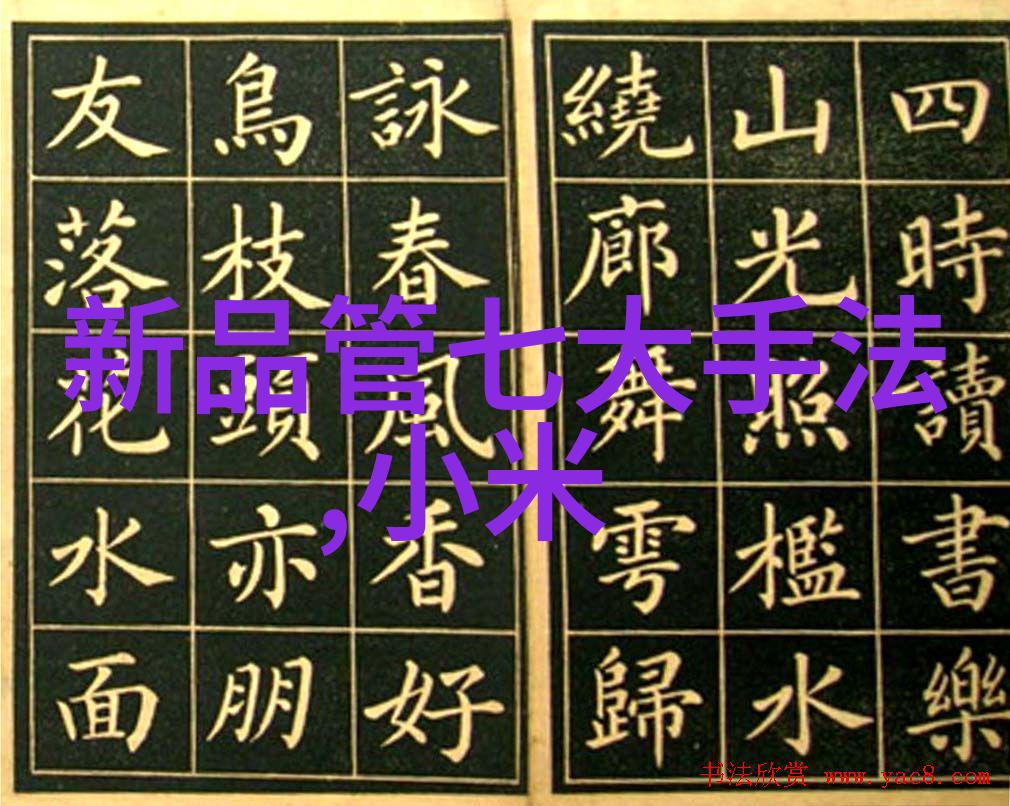 四時讀書樂
山光照檻水
繞廊舞雩歸
詠春風香好
鳥枝頭亦朋
友落花水面
新品管七大手法
,小米
书法欣赏 www.yac8.com